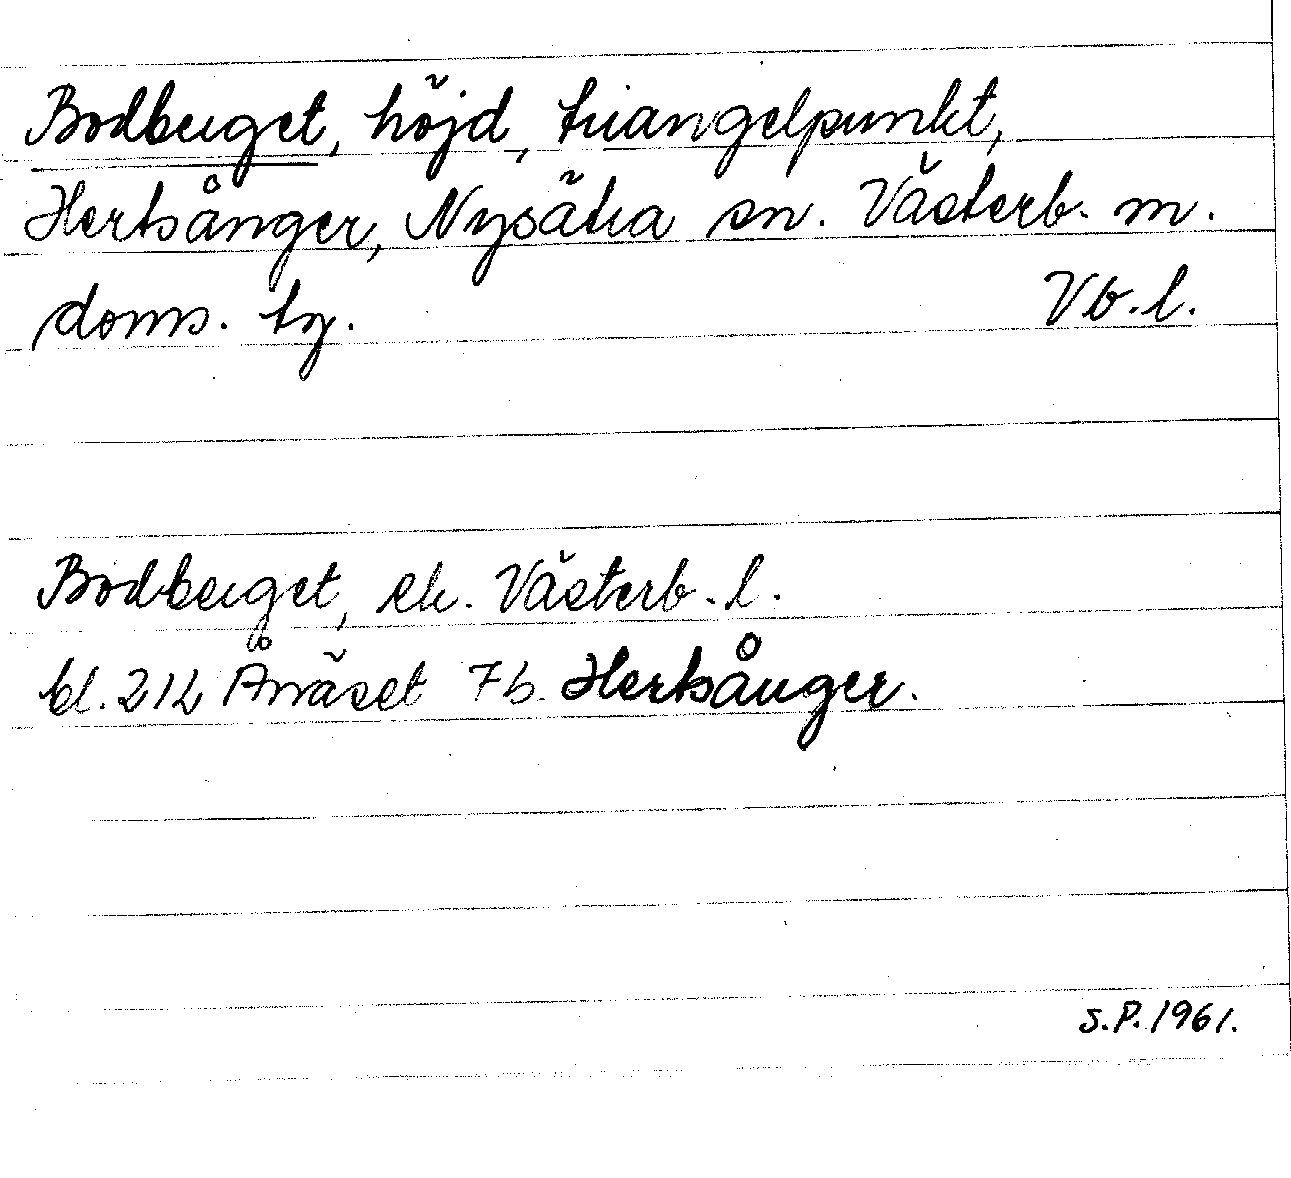 Bodberget, höjd, triangelpunkt,
Hertsånger, Nysätra sn. Västerb. m.
doms. tg. Vb. l.
Bodberget, ek. Västerb. l.
bl. 212 Ånäset 7b Hertsånger.
S.P. 1961.